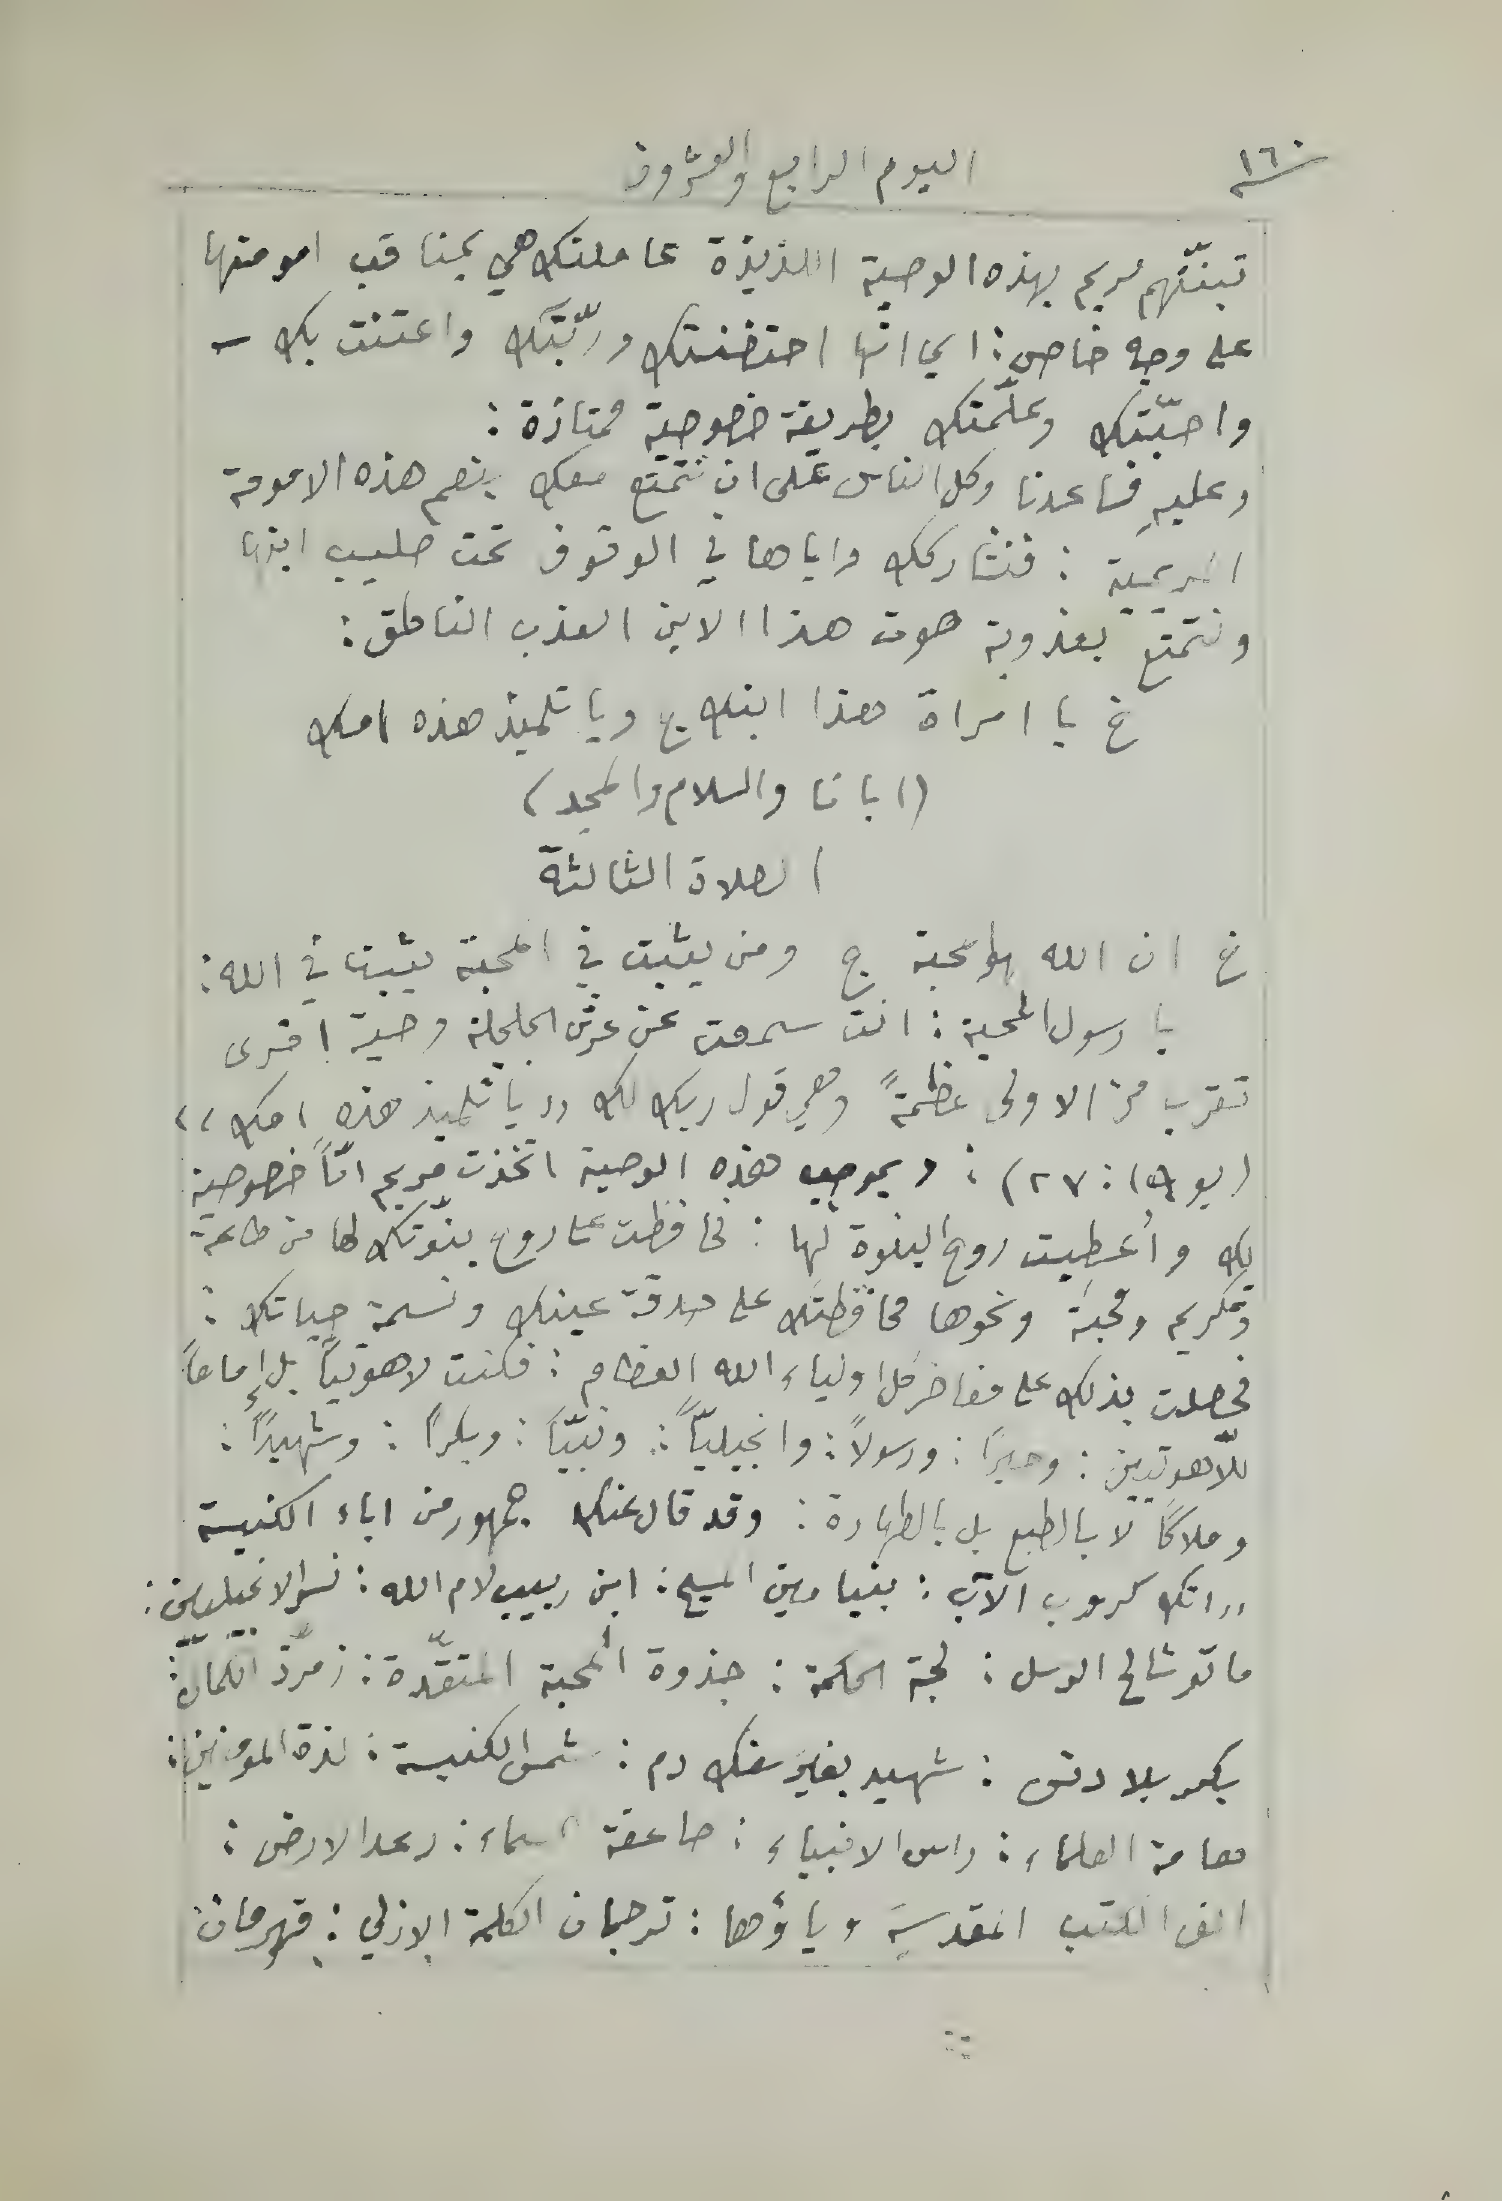 ١٦٠ اليوم الرابع والعشرون
تبنتهم مريم بهذه الوصية اللذيذة عاملتك هي بمناقب امومتها
على وجه خاص: اي انّها احتضنتك وربّتك واعتنت بك –
واحبّتك وعلّمتك بطريقة خصوصية ممتازة:
وعليهِ فساعدنا وكل الناس على ان نتمتّع معك بنعم هذه الامومة
المريمية: فنشاركك واياها في الوقوف تحت صليب ابنها
ونتمتع بعذوبة صوت هذا الابن العذب الناطق:
خ يا امراة هذا ابنك ج ويا تلميذ هذه امك
(ابانا والسلام والمجد)
الصلاة الثالثة
خ ان الله هو المحبة ج ومن يثبت في المحبة يثبت في الله:
يا رسول المحبة: انت سمعت عن عرش الجلجلة وصية اخرى
تقرب من الاولى عظمةً وهي قول ربك لك ,, يا تلميذ هذه امك ,,
(يو ١٩: ٢٧): وبموجب هذه الوصية اتخذت مريم امّاً خصوصية
لك وأُعطِيت روح البنوة لها: فحافظت على روح بنوّتك لها من طاعة
وتكريم ومحبة ونحوها محافظتَك على حدقة عينك ونسمة حياتك:
فحصلت بذلك على مفاخر كل اولياء الله العظام: فكنت لاهوتيّاً بل إماماً
للّاهوتيين: وحبراً: ورسولاً: وانجيليّاً: ونبيّاً: وبكراً: وشهيدًا:
وملاكًا لا بالطبع بل بالطهارة: وقد قال عنك جمهور من اباء الكنيسة
,, انك كروب الآب: بنيامين المسيح: ابن ربيب لام الله: نسر الانجيليين:
ماتوشالح الرسل: لجة الحكمة: جذوة المحبة المتقّدة: زمرّذ
بكر بلا دنس: شهيد بغير سفك دم: شمس الكنيسة: لذة المومنين:
هامة العلماء: راس الانبياء: صاعقة السماء: رعد الارض:
الف الكتب المقدسة وياؤها: ترجمان الكلمة الازلي: قهرمان